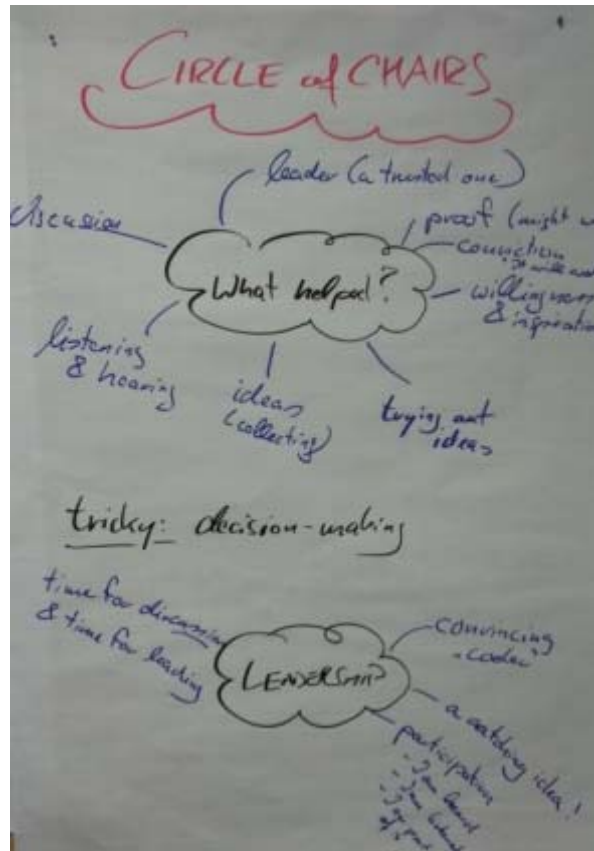 CIRCLE of CHAIRS
leader (a trusted one)
discussion
proof (might
conviction
What helped?
willingness
& inspiration
listening
& hearing
ideas
(collecting)
trying out
ideas
tricky: decision-making
time for discussion
& time for leading
LEADERSHIP
convincing
a catching idea!
participation